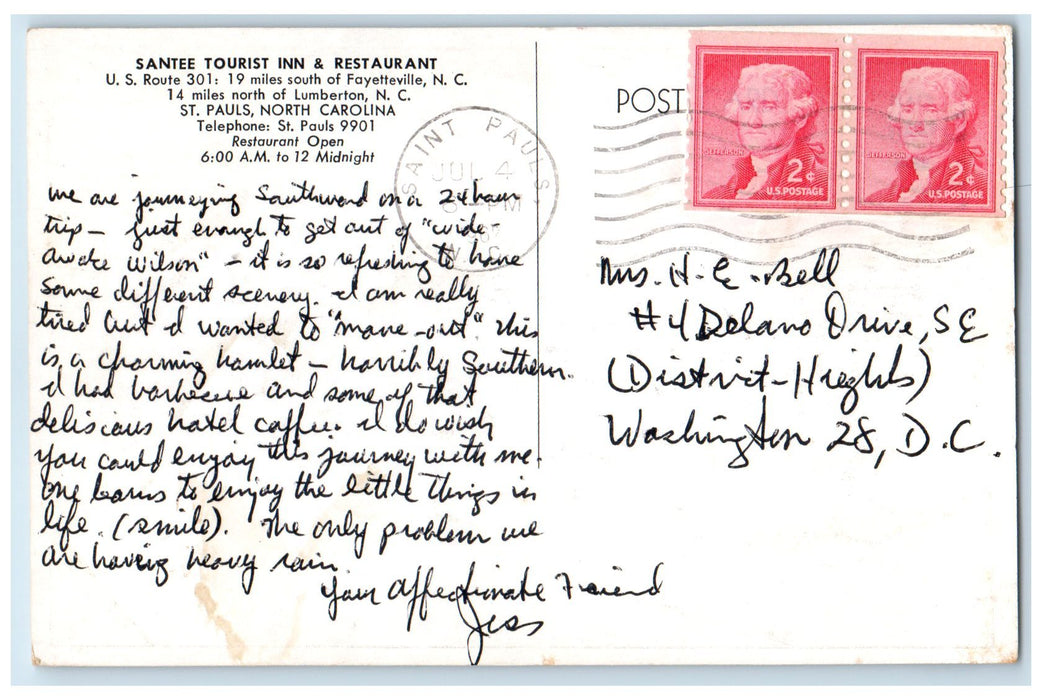 SANTEE TOURIST INN & RESTAURANT
U. S. Route 301: 19 miles south of Fayetteville, N. C.
14 miles north of Lumberton, N. C.
ST. PAULS, NORTH CAROLINA
Telephone: St. Pauls 9901
Restaurant Open
6:00 A.M. to 12 Midnight
we are journeying Southward on a 24 hour
trip – just enough to get out of "wide-
awake Wilson" – it is so refreshing to have
some different scenery. I am really
tired but I wanted to "move-out". This
is a charming hamlet – horribly Southern.
I had barbecue and some of that
delicious hotel coffee. I do wish
you could enjoy this journey with me.
One learns to enjoy the little things in
life. (smile). The only problem we
are having heavy rain
Your Affectionate Friend
Jess
SAINT PAULS
JUL 4
PM
N. C.
POST
JEFFERSON
2¢
U.S. POSTAGE
JEFFERSON
2¢
U.S. POSTAGE
Mrs. H. E. Bell
#4 Delano Drive, SE
(District-Hieghts)
Washington 28, D.C.